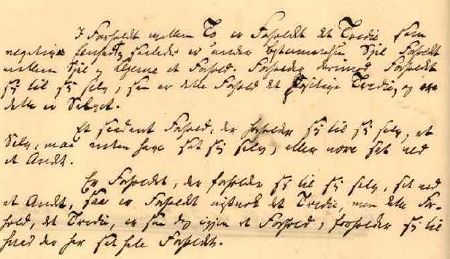 I Forholdet mellem To er Forholdet det Tredie som
negativ Eenhed; saaledes er under Bestemmelsen Sjel Forholdet
mellem Sjel og Legeme et Forhold. Forholder derimod Forholdet
sig til sig selv, saa er dette Forhold det positive Tredie, og
dette er Selvet.
Et saadant Forhold, der forholder sig til sig selv, et
Selv, maa enten have sat sig selv, eller være sat ved
et Andet.
Er Forholdet, der forholder sig til sig selv, sat ved
et Andet, saa er Forholdet vistnok det Tredie, men dette For-
hold, det Tredie, er saa dog igjen et Forhold, forholder sig til
hvad der har sat hele Forholdet.